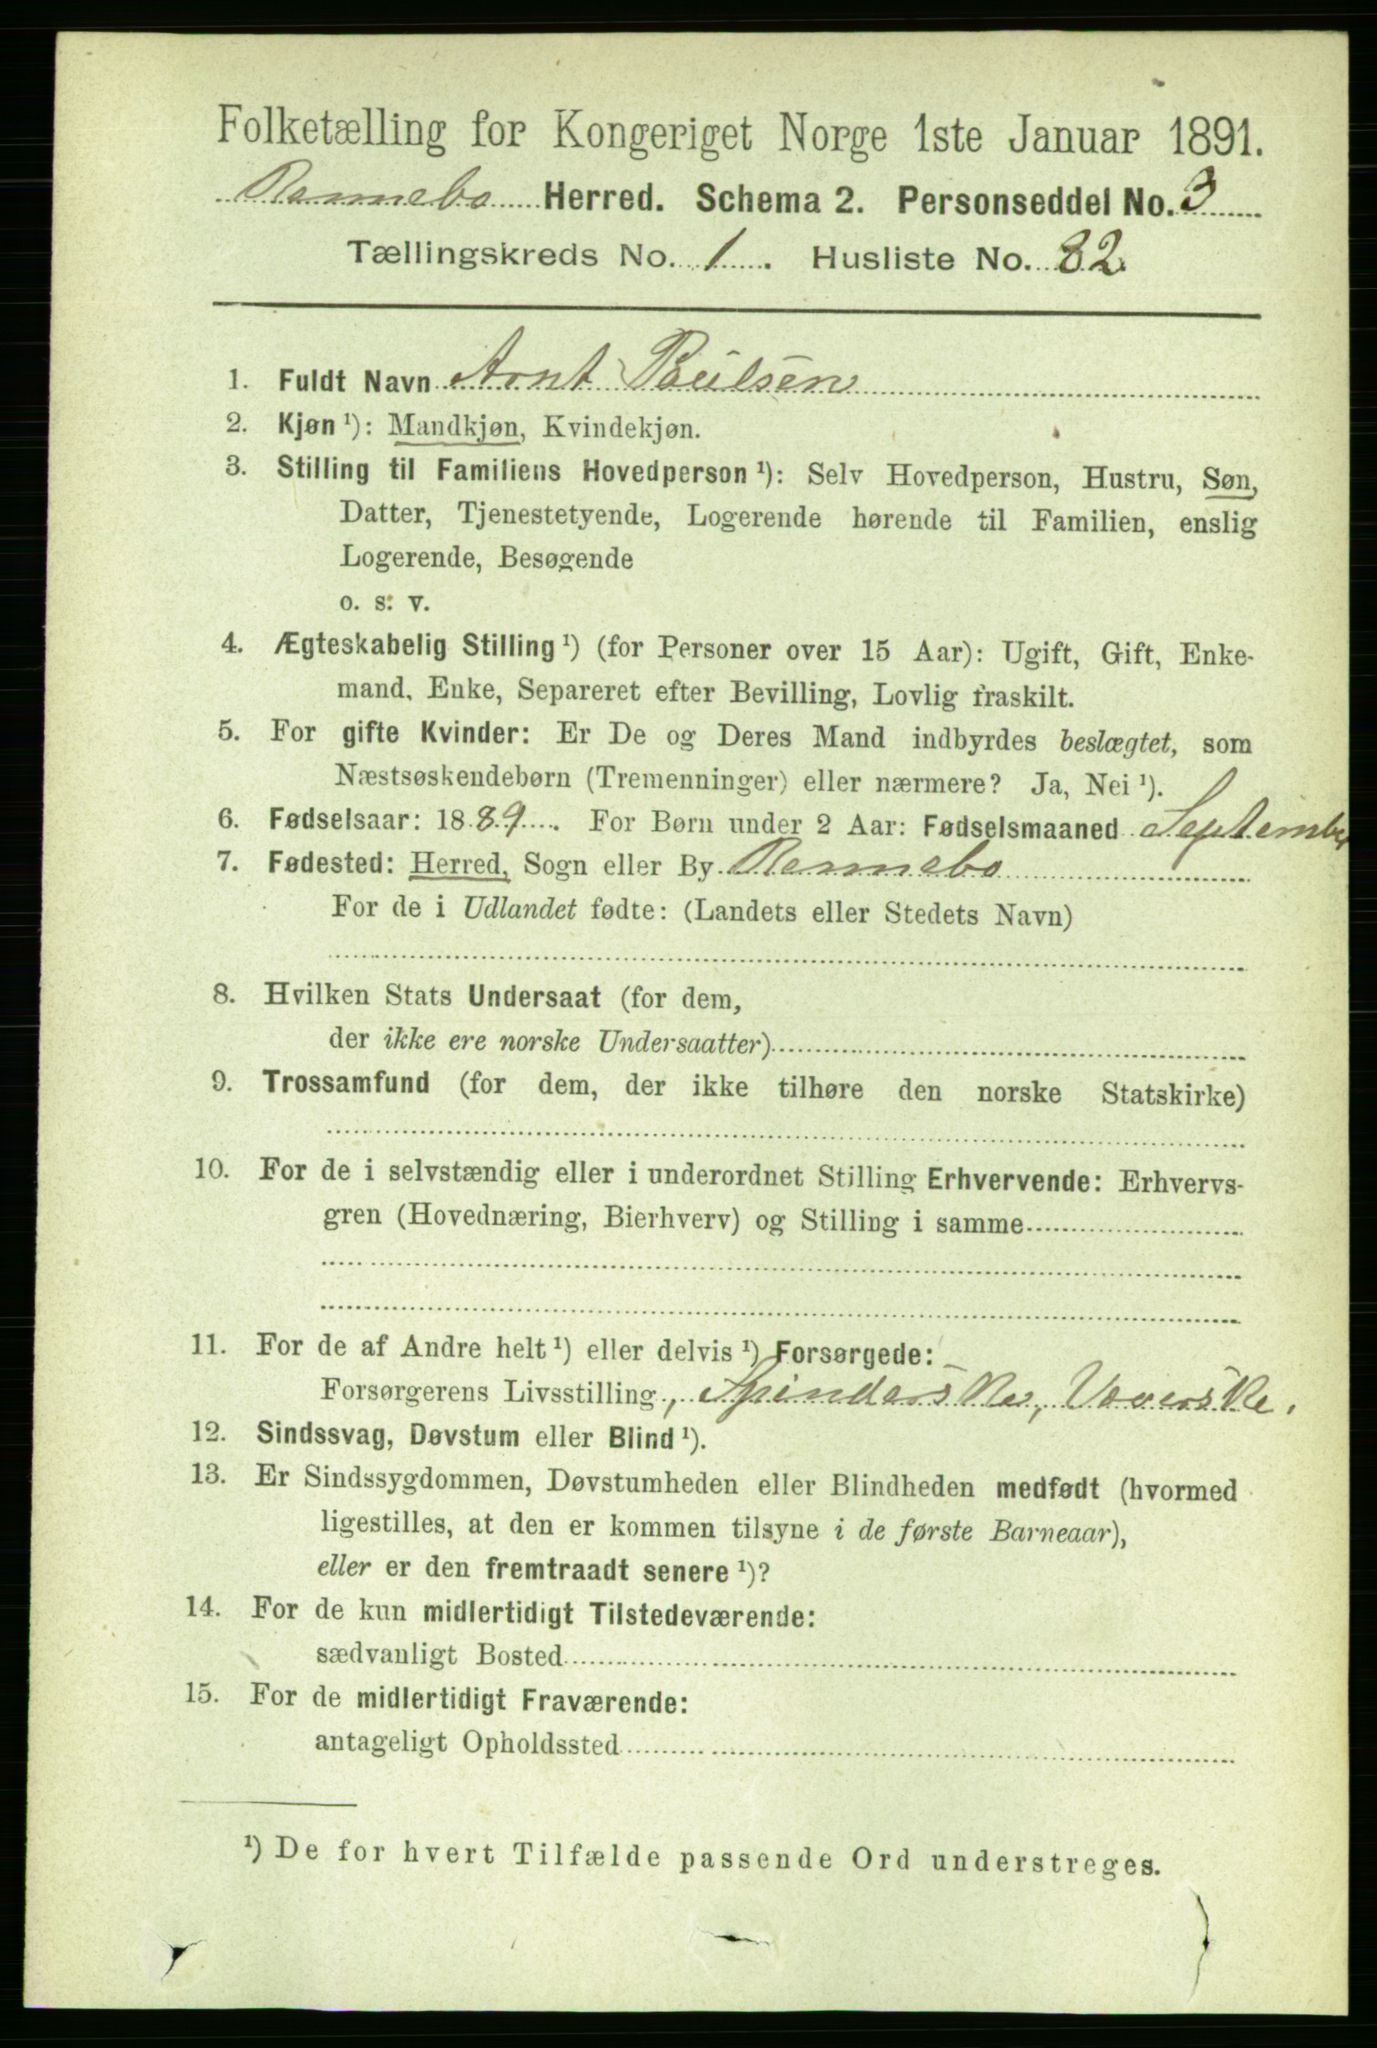 Folketælling for Kongeriget Norge 1ste Januar 1891.
Rennebo Herred. Schema 2. Personseddel No. 3
Tællingskreds No. 1. Husliste No. 82
1. Fuldt Navn Arnt Paulsen
2. Kjøn ¹): Mandkjøn, Kvindekjøn.
3. Stilling til Familiens Hovedperson ¹): Selv Hovedperson, Hustru, Søn,
Datter, Tjenestetyende, Logerende hørende til Familien, enslig
Logerende, Besøgende
o. s. v.
4. Ægteskabelig Stilling ¹) (for Personer over 15 Aar): Ugift, Gift, Enke-
mand, Enke, Separeret efter Bevilling, Lovlig fraskilt.
5. For gifte Kvinder: Er De og Deres Mand indbyrdes beslægtet, som
Næstsøskendebørn (Tremenninger) eller nærmere? Ja, Nei ¹).
6. Fødselsaar: 1889. For Børn under 2 Aar: Fødselsmaaned September
7. Fødested: Herred, Sogn eller By Rennebo
For de i Udlandet fødte: (Landets eller Stedets Navn)
8. Hvilken Stats Undersaat (for dem,
der ikke ere norske Undersaatter)
9. Trossamfund (for dem, der ikke tilhøre den norske Statskirke)
10. For de i selvstændig eller i underordnet Stilling Erhvervende: Erhvervs-
gren (Hovednæring, Bierhverv) og Stilling i samme
11. For de af Andre helt ¹) eller delvis ¹) Forsørgede:
Forsørgerens Livsstilling, Spinderske, Væverske.
12. Sindssvag, Døvstum eller Blind ¹).
13. Er Sindssygdommen, Døvstumheden eller Blindheden medfødt (hvormed
ligestilles, at den er kommen tilsyne i de første Barneaar),
eller er den fremtraadt senere ¹)?
14. For de kun midlertidigt Tilstedeværende:
sædvanligt Bosted
15. For de midlertidigt Fraværende:
antageligt Opholdssted
¹) De for hvert Tilfælde passende Ord understreges.